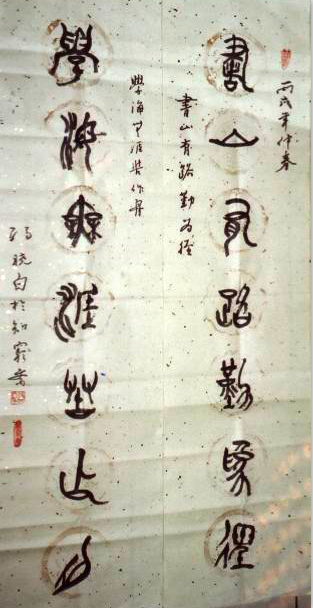 丙戌年仲春
書山有路勤為徑
書山有路勤为徑
學海無涯苦作舟
學海無涯苦作舟
曉白於知